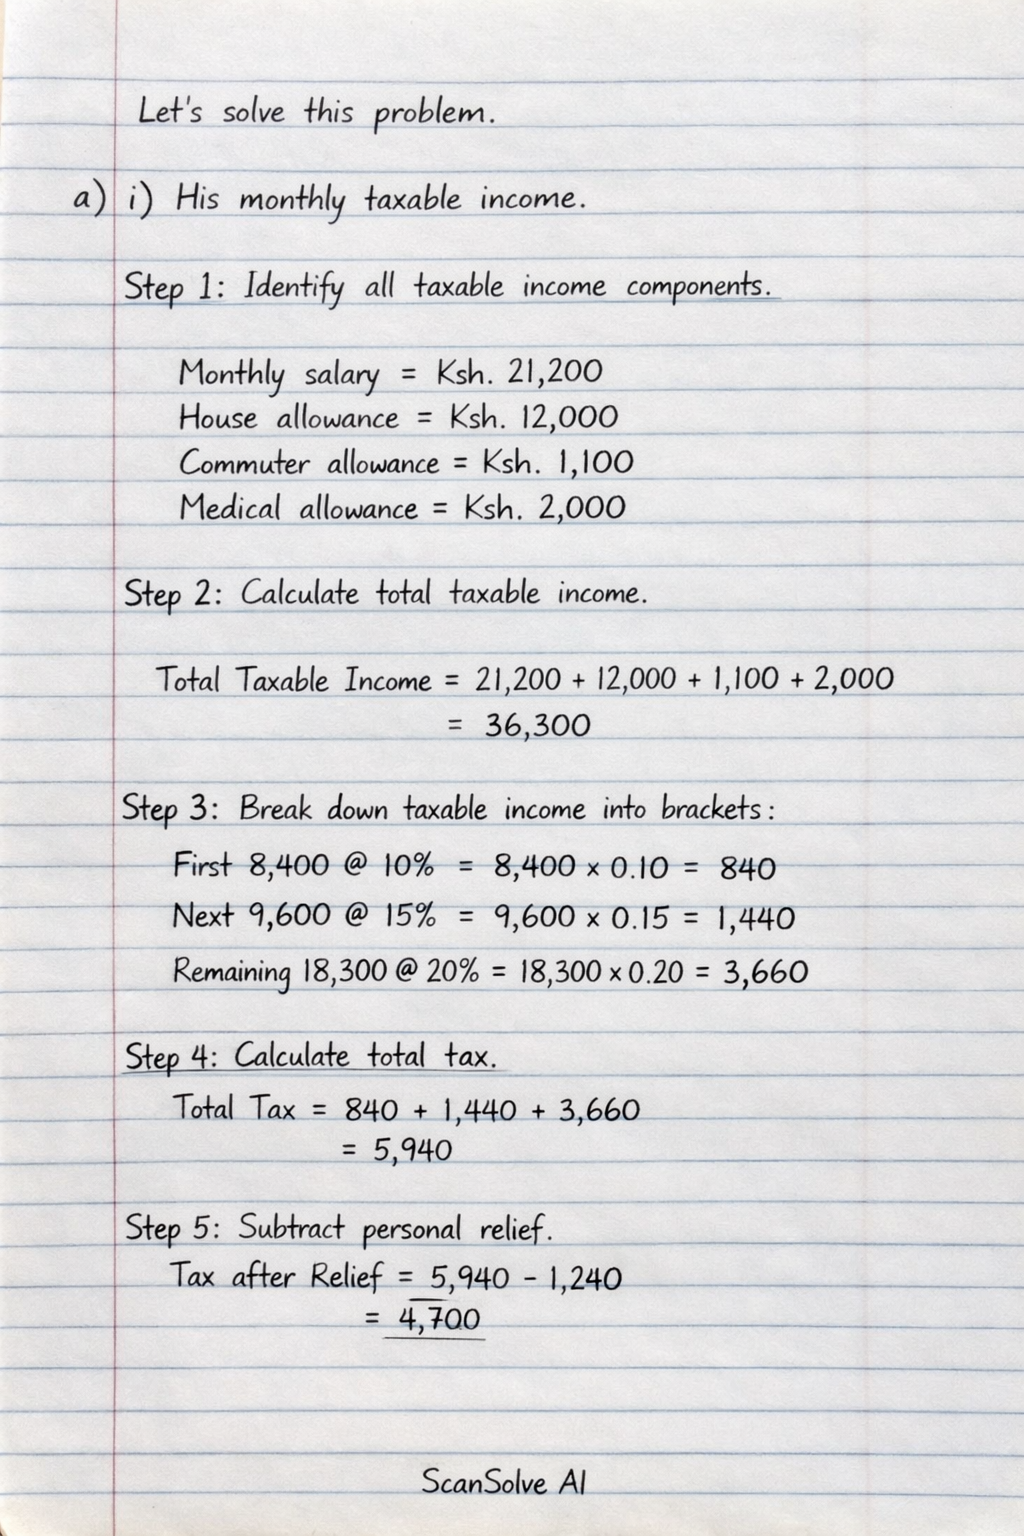 Let's solve this problem.
a) i) His monthly taxable income.
Step 1: Identify all taxable income components.
Monthly salary = Ksh. 21,200
House allowance = Ksh. 12,000
Commuter allowance = Ksh. 1,100
Medical allowance = Ksh. 2,000
Step 2: Calculate total taxable income.
Total Taxable Income = 21,200 + 12,000 + 1,100 + 2,000
= 36,300
Step 3: Break down taxable income into brackets:
First 8,400 @ 10% = 8,400 x 0.10 = 840
Next 9,600 @ 15% = 9,600 x 0.15 = 1,440
Remaining 18,300 @ 20% = 18,300 x 0.20 = 3,660
Step 4: Calculate total tax.
Total Tax = 840 + 1,440 + 3,660
= 5,940
Step 5: Subtract personal relief.
Tax after Relief = 5,940 - 1,240
= 4,700
ScanSolve AI